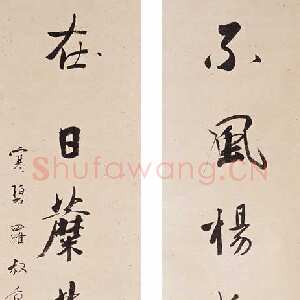 不風楊
在日蘪
寞碧羅叔
Shufawang.CN